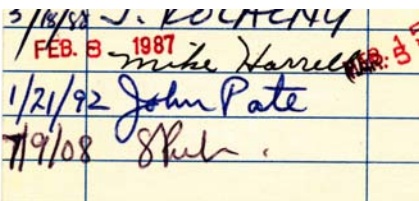 3/18/88 J. KOCHENY
FEB. 3 1987 Mike Harrell MAR. 5
1/21/92 John Pate
7/9/08